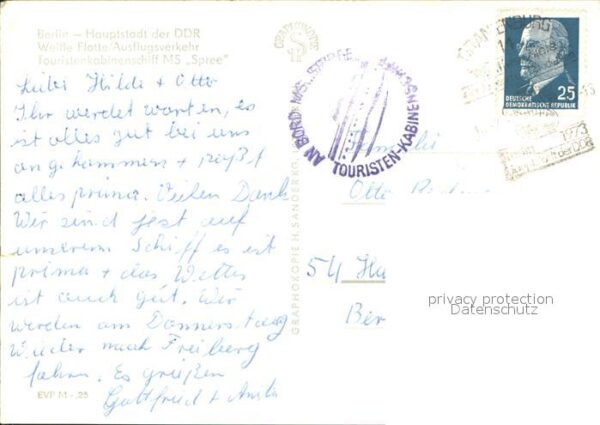 Berlin – Hauptstadt der DDR
Weiße Flotte/Ausflugsverkehr
Touristenkabinenschiff MS „Spree"
Liebe Hilde + Otto
Ihr werdet warten, es
ist alles gut bei uns
angekommen + paßt
alles prima. Vielen Dank
Wir sind jest auf
unserem Schiff es ist
prima + das Wetter
ist auch gut. Wir
werden am Donnerstag
wieder nach Freiberg
fahrn. Es grüßen
Gottfried + Anita
EVP M -,25
GRAPHOKOPIE H. SANDER KG
AN BORD MS „SPREE"
TOURISTEN-KABINEN
25
DEUTSCHE
DEMOKRATISCHE REPUBLIK
1973
in der DDR
Familie
Otto
54 Ha
Ber
privacy protection
Datenschutz